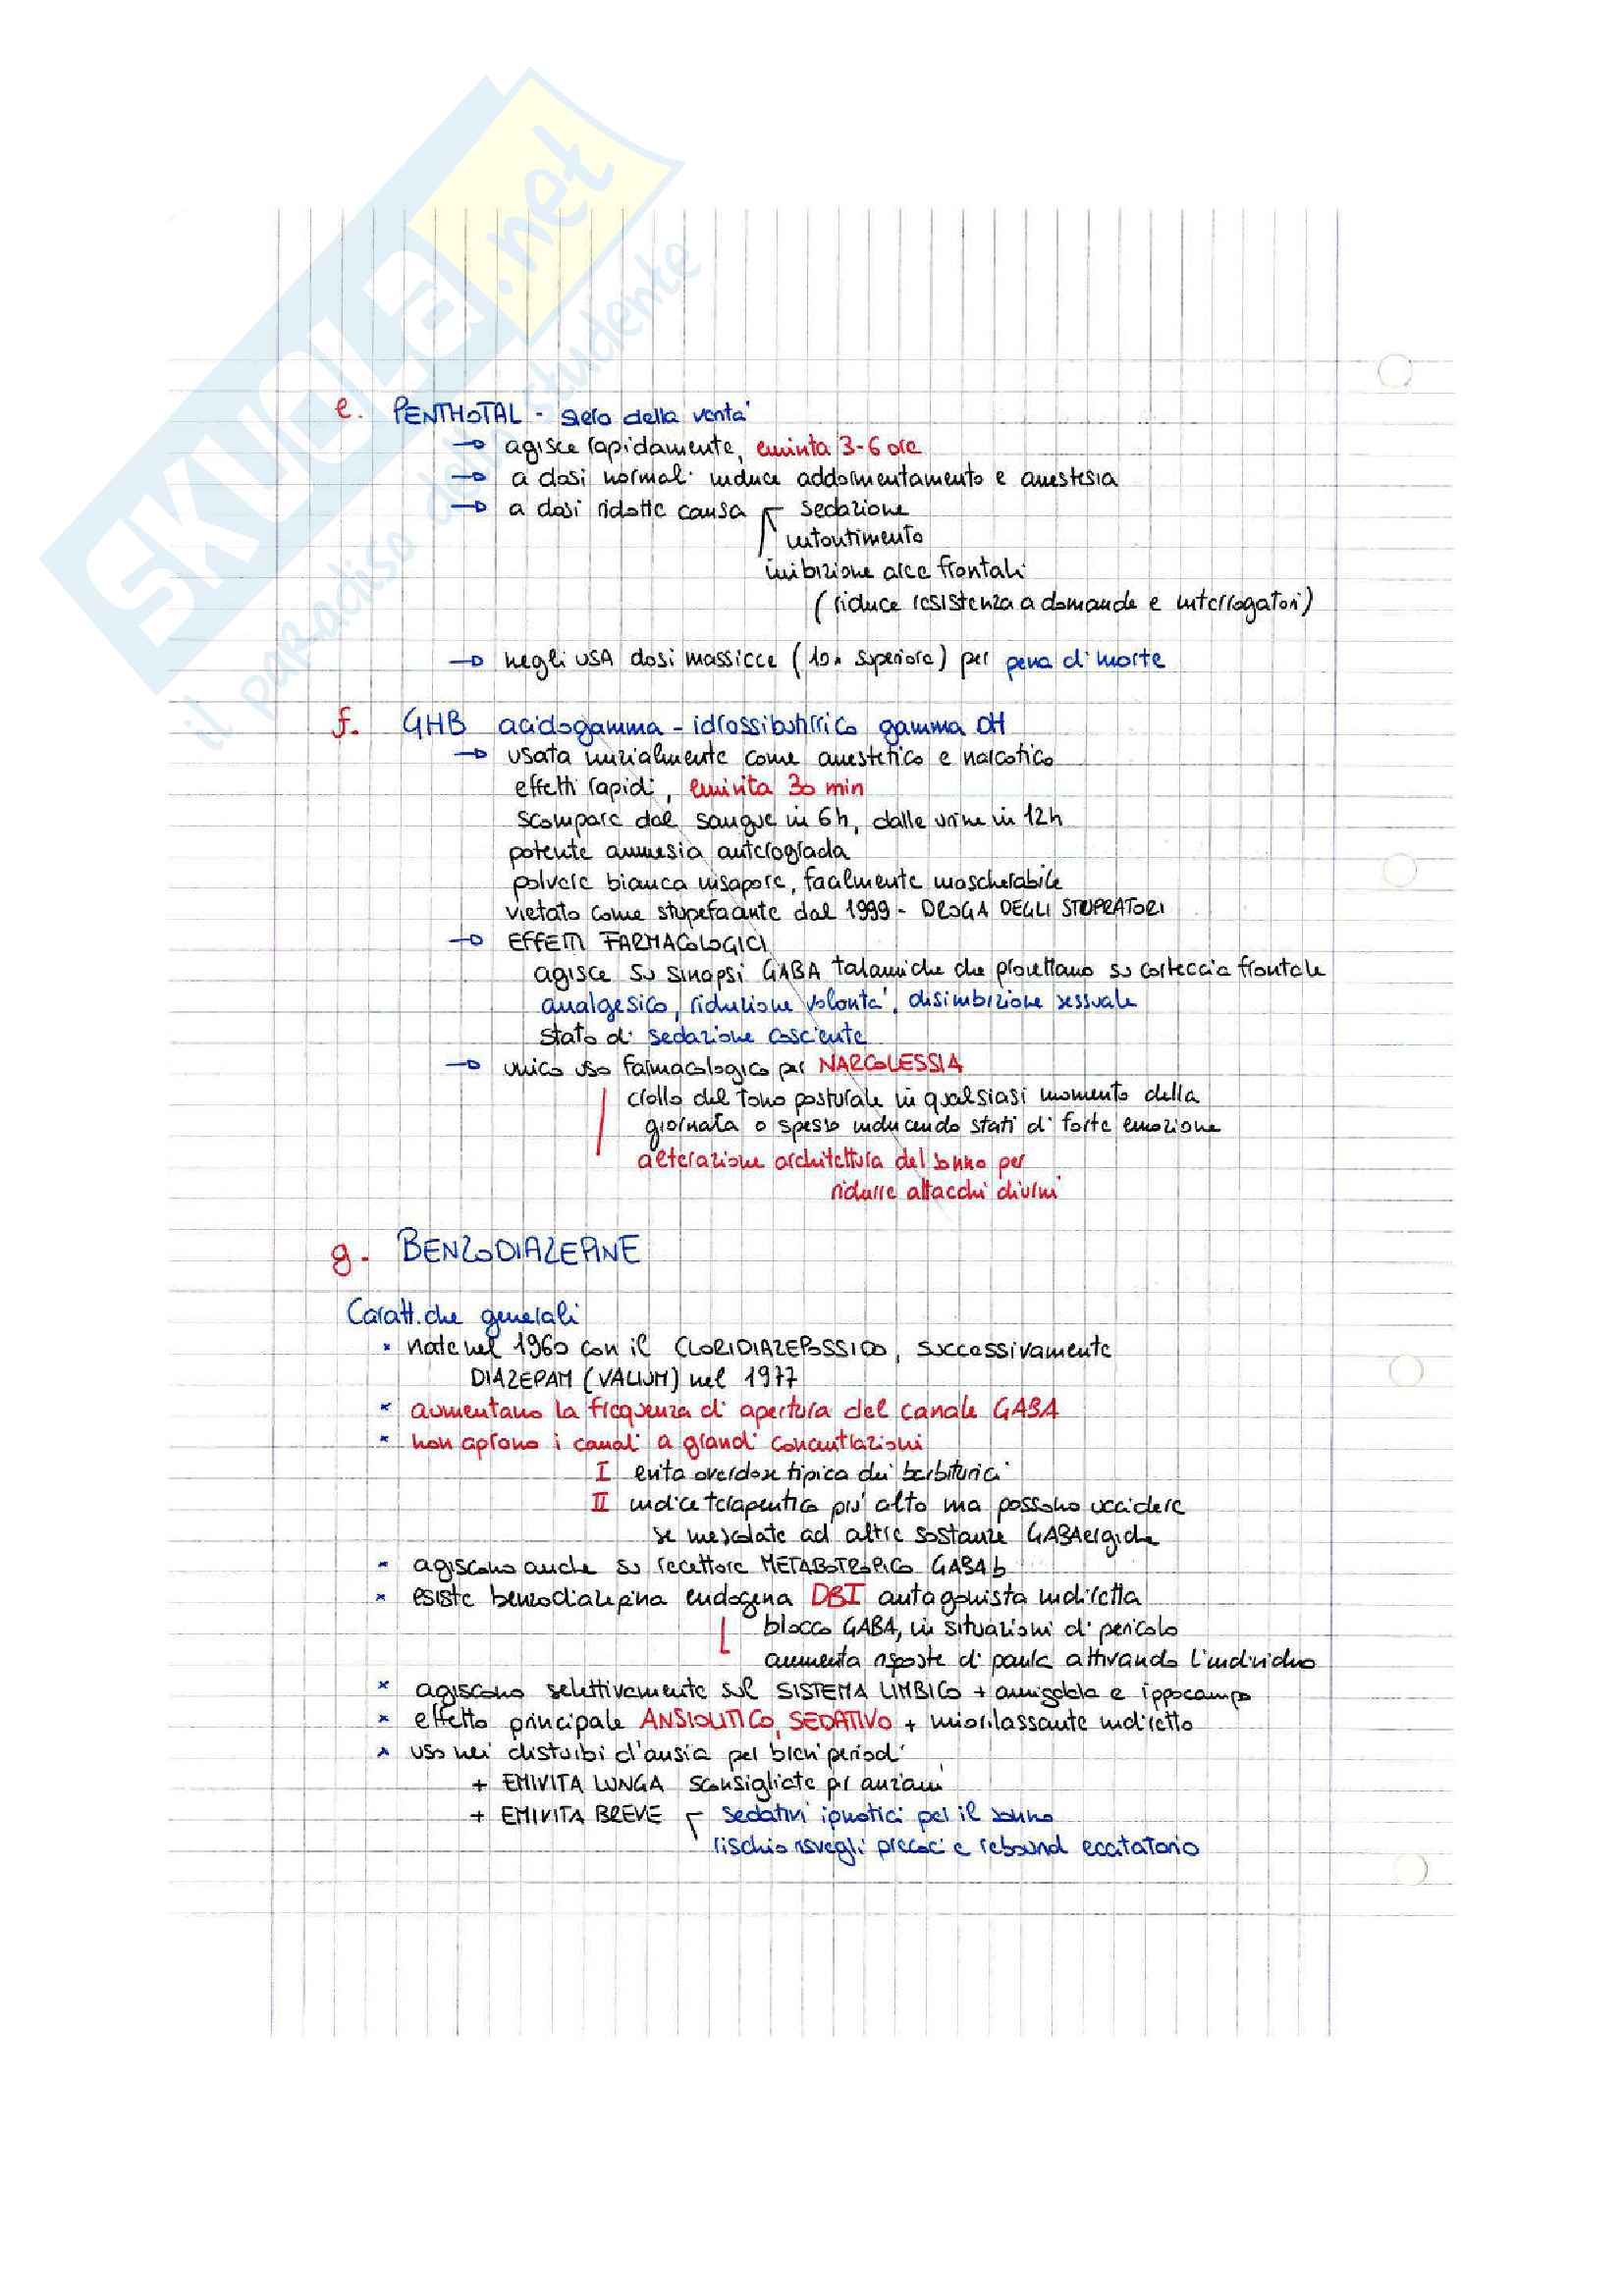 SKUOLA.net
il paradiso dello studente
e. PENTHOTAL - siero della verità
→ agisce rapidamente, emivita 3-6 ore
→ a dosi normali induce addormentamento e anestesia
→ a dosi ridotte causa sedazione
intontimento
inibizione aree frontali
(riduce resistenza a domande e interrogatori)
→ negli USA dosi massicce (10x superiore) per pena di morte
f. GHB acidogamma-idrossibutirrico gamma OH
→ usata inizialmente come anestetico e narcotico
effetti rapidi, emivita 30 min
scompare dal sangue in 6h, dalle urine in 12h
potente amnesia anterograda
polvere bianca insapore, facilmente mascherabile
vietato come stupefacente dal 1999 - DROGA DEGLI STUPRATORI
→ EFFETTI FARMACOLOGICI
agisce su sinapsi GABA talamiche che proiettano su corteccia frontale
analgesico, riduzione volontà, disinibizione sessuale
stato di sedazione cosciente
→ unico uso farmacologico per NARCOLESSIA
crollo del tono posturale in qualsiasi momento della
giornata o spesso inducendo stati di forte emozione
alterazione architettura del sonno per
ridurre attacchi diurni
g. BENZODIAZEPINE
Caratt.che generali
* nate nel 1960 con il CLORIDIAZEPOSSIDO, successivamente
DIAZEPAM (VALIUM) nel 1977
* aumentano la frequenza di apertura del canale GABA
* non aprono i canali a grandi concentrazioni
I evita overdose tipica dei barbiturici
II indice terapeutico più alto ma possono uccidere
se mescolate ad altre sostanze GABAergiche
* agiscono anche su recettore METABOTROPICO GABAb
* esiste benzodiazepina endogena DBI antagonista indiretta
blocco GABA, in situazioni di pericolo
aumenta risposte di paura attivando l'individuo
* agiscono selettivamente sul SISTEMA LIMBICO + amigdala e ippocampo
* effetto principale ANSIOLITICO, SEDATIVO + miorilassante indiretto
* uso nei disturbi d'ansia per brevi periodi
+ EMIVITA LUNGA sconsigliate per anziani
+ EMIVITA BREVE sedativi ipnotici per il sonno
rischio risvegli precoci e rebound eccitatorio